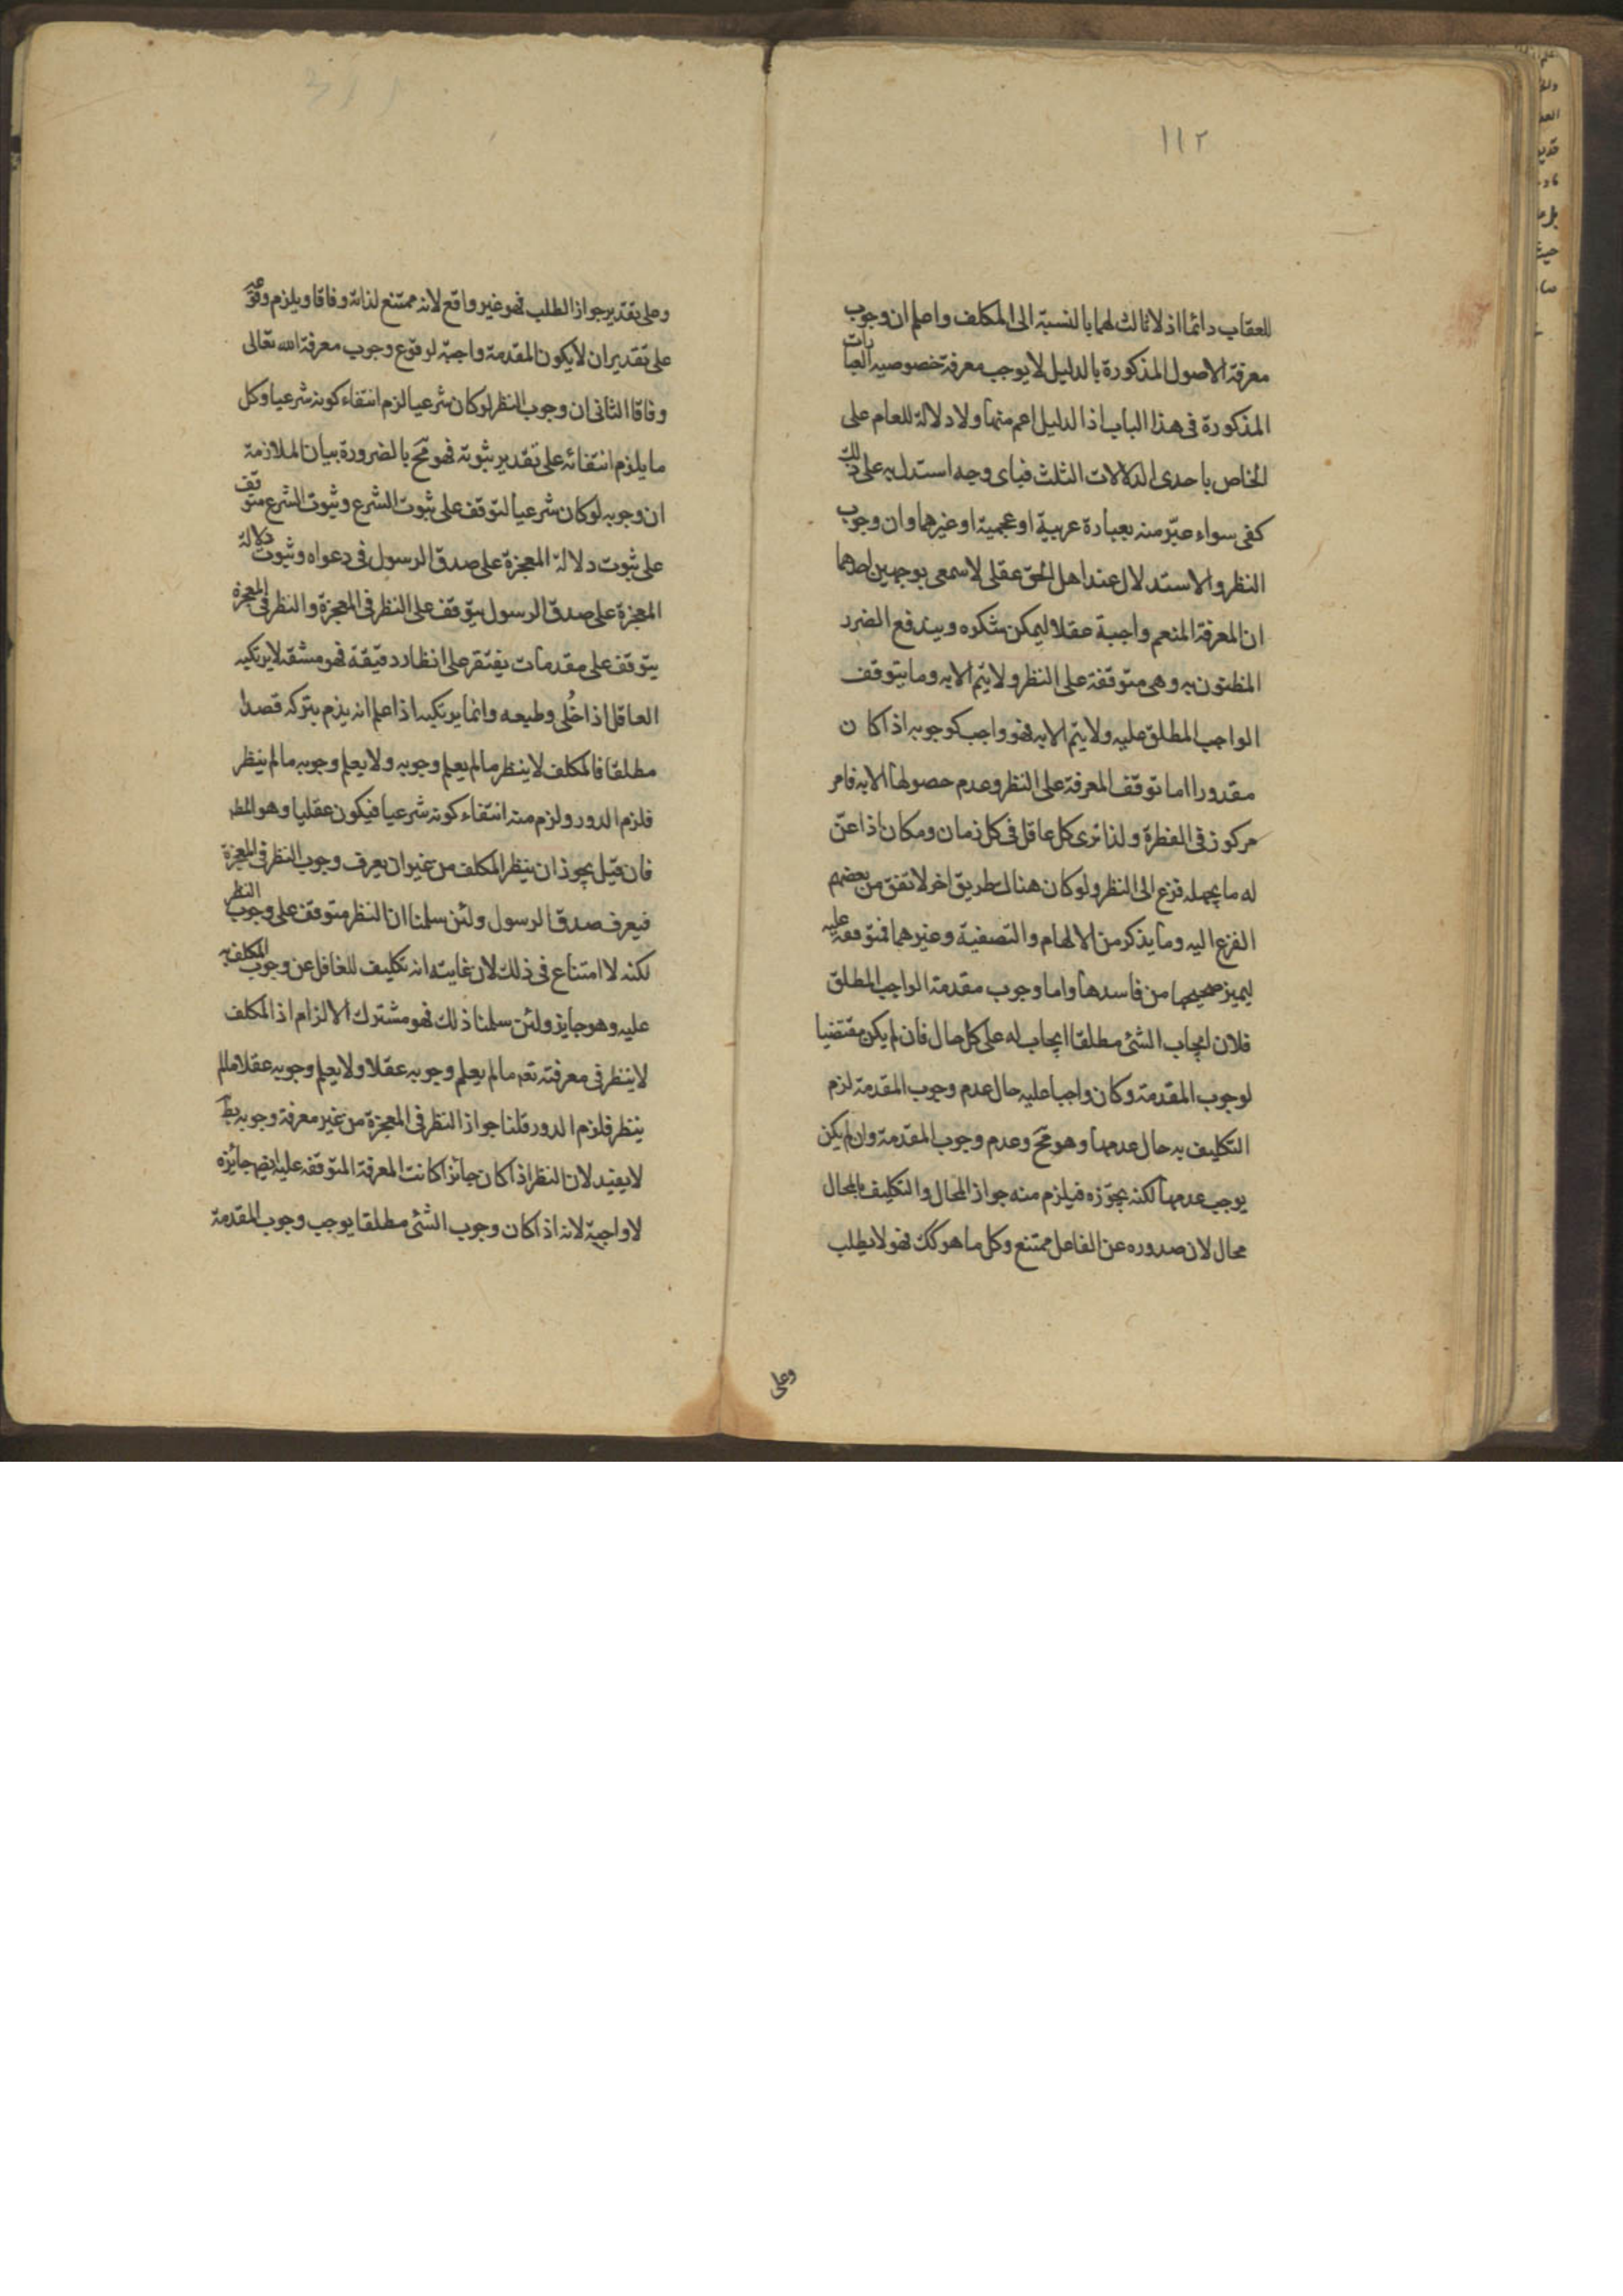 ١١٢
للعقاب دائما اذ لا ثالث لهما بالنسبة الى المكلف واعلم ان وجوب
معرفة الاصول المذكورة بالدليل لا يوجب معرفة خصوصية العبارات
المذكورة فى هذا الباب اذ الدليل اعم منها ولا دلالة للعام على
الخاص باحدى الدلالات الثلث فباى وجه استدل به على ذلك
كفى سواء عبّر منه بعبارة عربية او عجمية او غيرهما وان وجوب
النظر والاستدلال عند اهل الحق عقلى لا سمعى بوجهين احدهما
ان المعرفة المنعم واجبة عقلا ليمكن شكره ويندفع الضرر
المظنون به وهى متوقفة على النظر ولا يتم الا به وما يتوقف
الواجب المطلق عليه ولا يتم الا به فهو واجب كوجوبه اذا كان
مقدورا اما توقف المعرفة على النظر وعدم حصولها الا به فامر
مركوز فى الفطرة ولذا ترى كل عاقل فى كل زمان ومكان اذا عنّ
له ما يجهله فزع الى النظر ولو كان هناك طريق اخر لاتفق من بعضهم
الفزع اليه وما يذكر من الالهام والتصفية وغيرهما فمتوقفة عليه
ليميز صحيحها من فاسدها واما وجوب مقدمة الواجب المطلق
فلان ايجاب الشئ مطلقا ايجاب له على كل حال فان لم يكن مقتضيا
لوجوب المقدمة وكان واجبا عليه حال عدم وجوب المقدمة لزم
التكليف به حال عدمها وهو مح وعدم وجوب المقدمة وان لم يكن
يوجب عدمها لكنه يجوّزه فيلزم منه جواز المحال والتكليف بالمحال
محال لان صدوره عن الفاعل ممتنع وكل ما هو كك فهو لا يطلب
وعلى
وعلى تقدير جواز الطلب فهو غير واقع لانه ممتنع لذاته وفاقا ويلزم وقوعه
على تقدير ان لا يكون المقدمة واجبة لوقوع وجوب معرفة الله تعالى
وفاقا الثانى ان وجوب النظر لو كان شرعيا لزم انتفاء كونه شرعيا وكل
ما يلزم انتفائه على تقدير ثبوته فهو مح بالضرورة بيان الملازمة
ان وجوبه لو كان شرعيا لتوقف على ثبوت الشرع وثبوت الشرع متوقف
على ثبوت دلالة المعجزة على صدق الرسول فى دعواه وثبوت دلالة
المعجزة على صدق الرسول يتوقف على النظر فى المعجزة والنظر فى المعجزة
يتوقف على مقدمات يفتقر على انظار دقيقة فهو مشقة لا يرتكبه
العاقل اذا خُلى وطبعه وانما يرتكبه اذا علم انه يذم بتركه قصدا
مطلقا فالمكلف لا ينظر ما لم يعلم وجوبه ولا يعلم وجوبه ما لم ينظر
فلزم الدور ولزم منه انتفاء كونه شرعيا فيكون عقليا وهو المط
فان قيل يجوز ان ينظر المكلف من غير ان يعرف وجوب النظر فى المعجزة
فيعرف صدق الرسول ولئن سلمنا ان النظر متوقف على وجوب النظر
لكنه لا امتناع فى ذلك لان غايته انه تكليف للغافل عن وجوب المكلف به
عليه وهو جايز ولئن سلمنا ذلك فهو مشترك الالزام اذ المكلف
لا ينظر فى معرفته تعه ما لم يعلم وجوبه عقلا ولا يعلم وجوبه عقلا ما لم
ينظر فلزم الدور قلنا جواز النظر فى المعجزة من غير معرفة وجوبه بط
لا يفيد لان النظر اذا كان جائزا كانت المعرفة المتوقفة عليه ايضا جائزه
لا واجبة لانه اذا كان وجوب الشئ مطلقا يوجب وجوب المقدمة